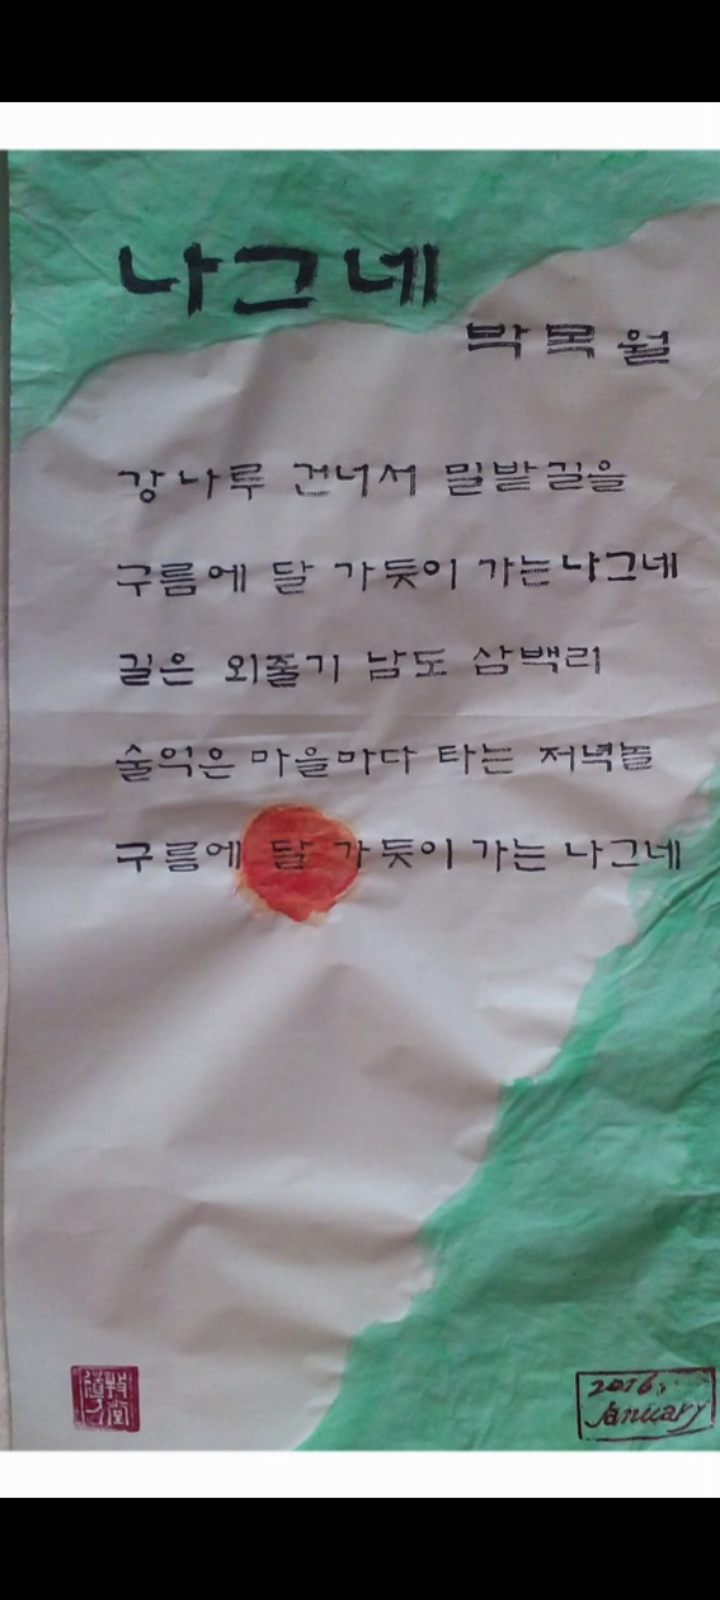 나그네
박목월
강나루 건너서 밀밭길을
구름에 달 가듯이 가는 나그네
길은 외줄기 남도 삼백리
술익은 마을마다 타는 저녁놀
구름에 달 가듯이 가는 나그네
2016.
January